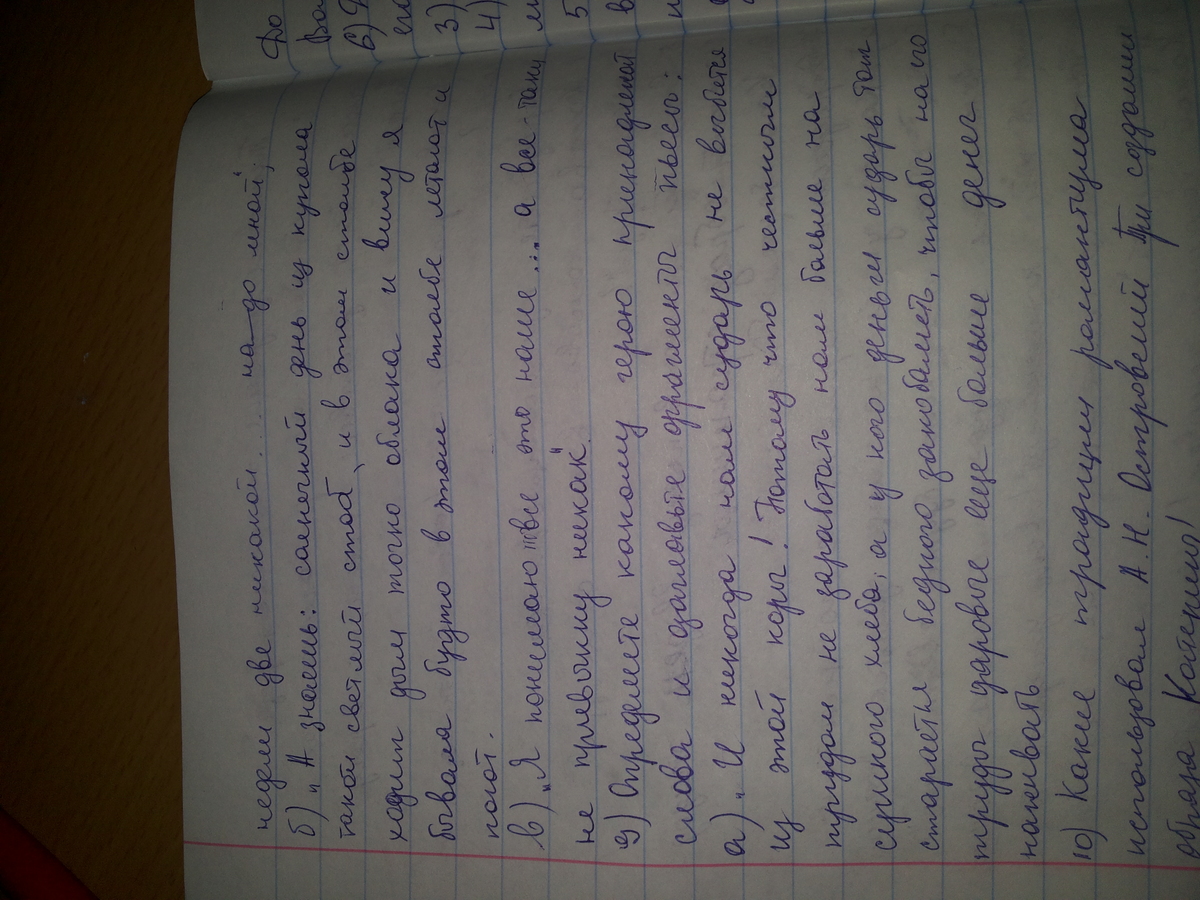 недели две никакой... на до мной";
б) „А знаешь: солнечный день из купола
такой светлый столб, и в этом столбе
ходит дым точно облака и вижу я
бывало будто в этом столбе летают и
поют.
в) „Я понимаю что все это наше... а все-таки
не привыкну никак".
9) Определите какому герою принадлежат
слова и заглавьте фрагменты пьесы:
а) „И никогда нам сударь не выбится
из этой коры! Потому что честным
трудом не заработать нам больше на
сущного хлеба, а у кого деньги сударь тот
старается бедного закабалеть, чтобы на его
труды даровые еще больше денег
наживать
10) Какие традиции романтизма
использовал А.Н. Островский При создании
образа Катерины!
До
6)
3)
4)
5